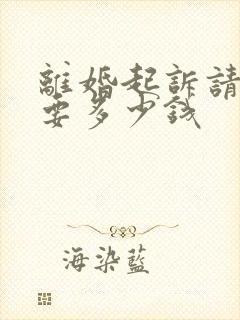 離婚起訴請
要多少錢
海染藍